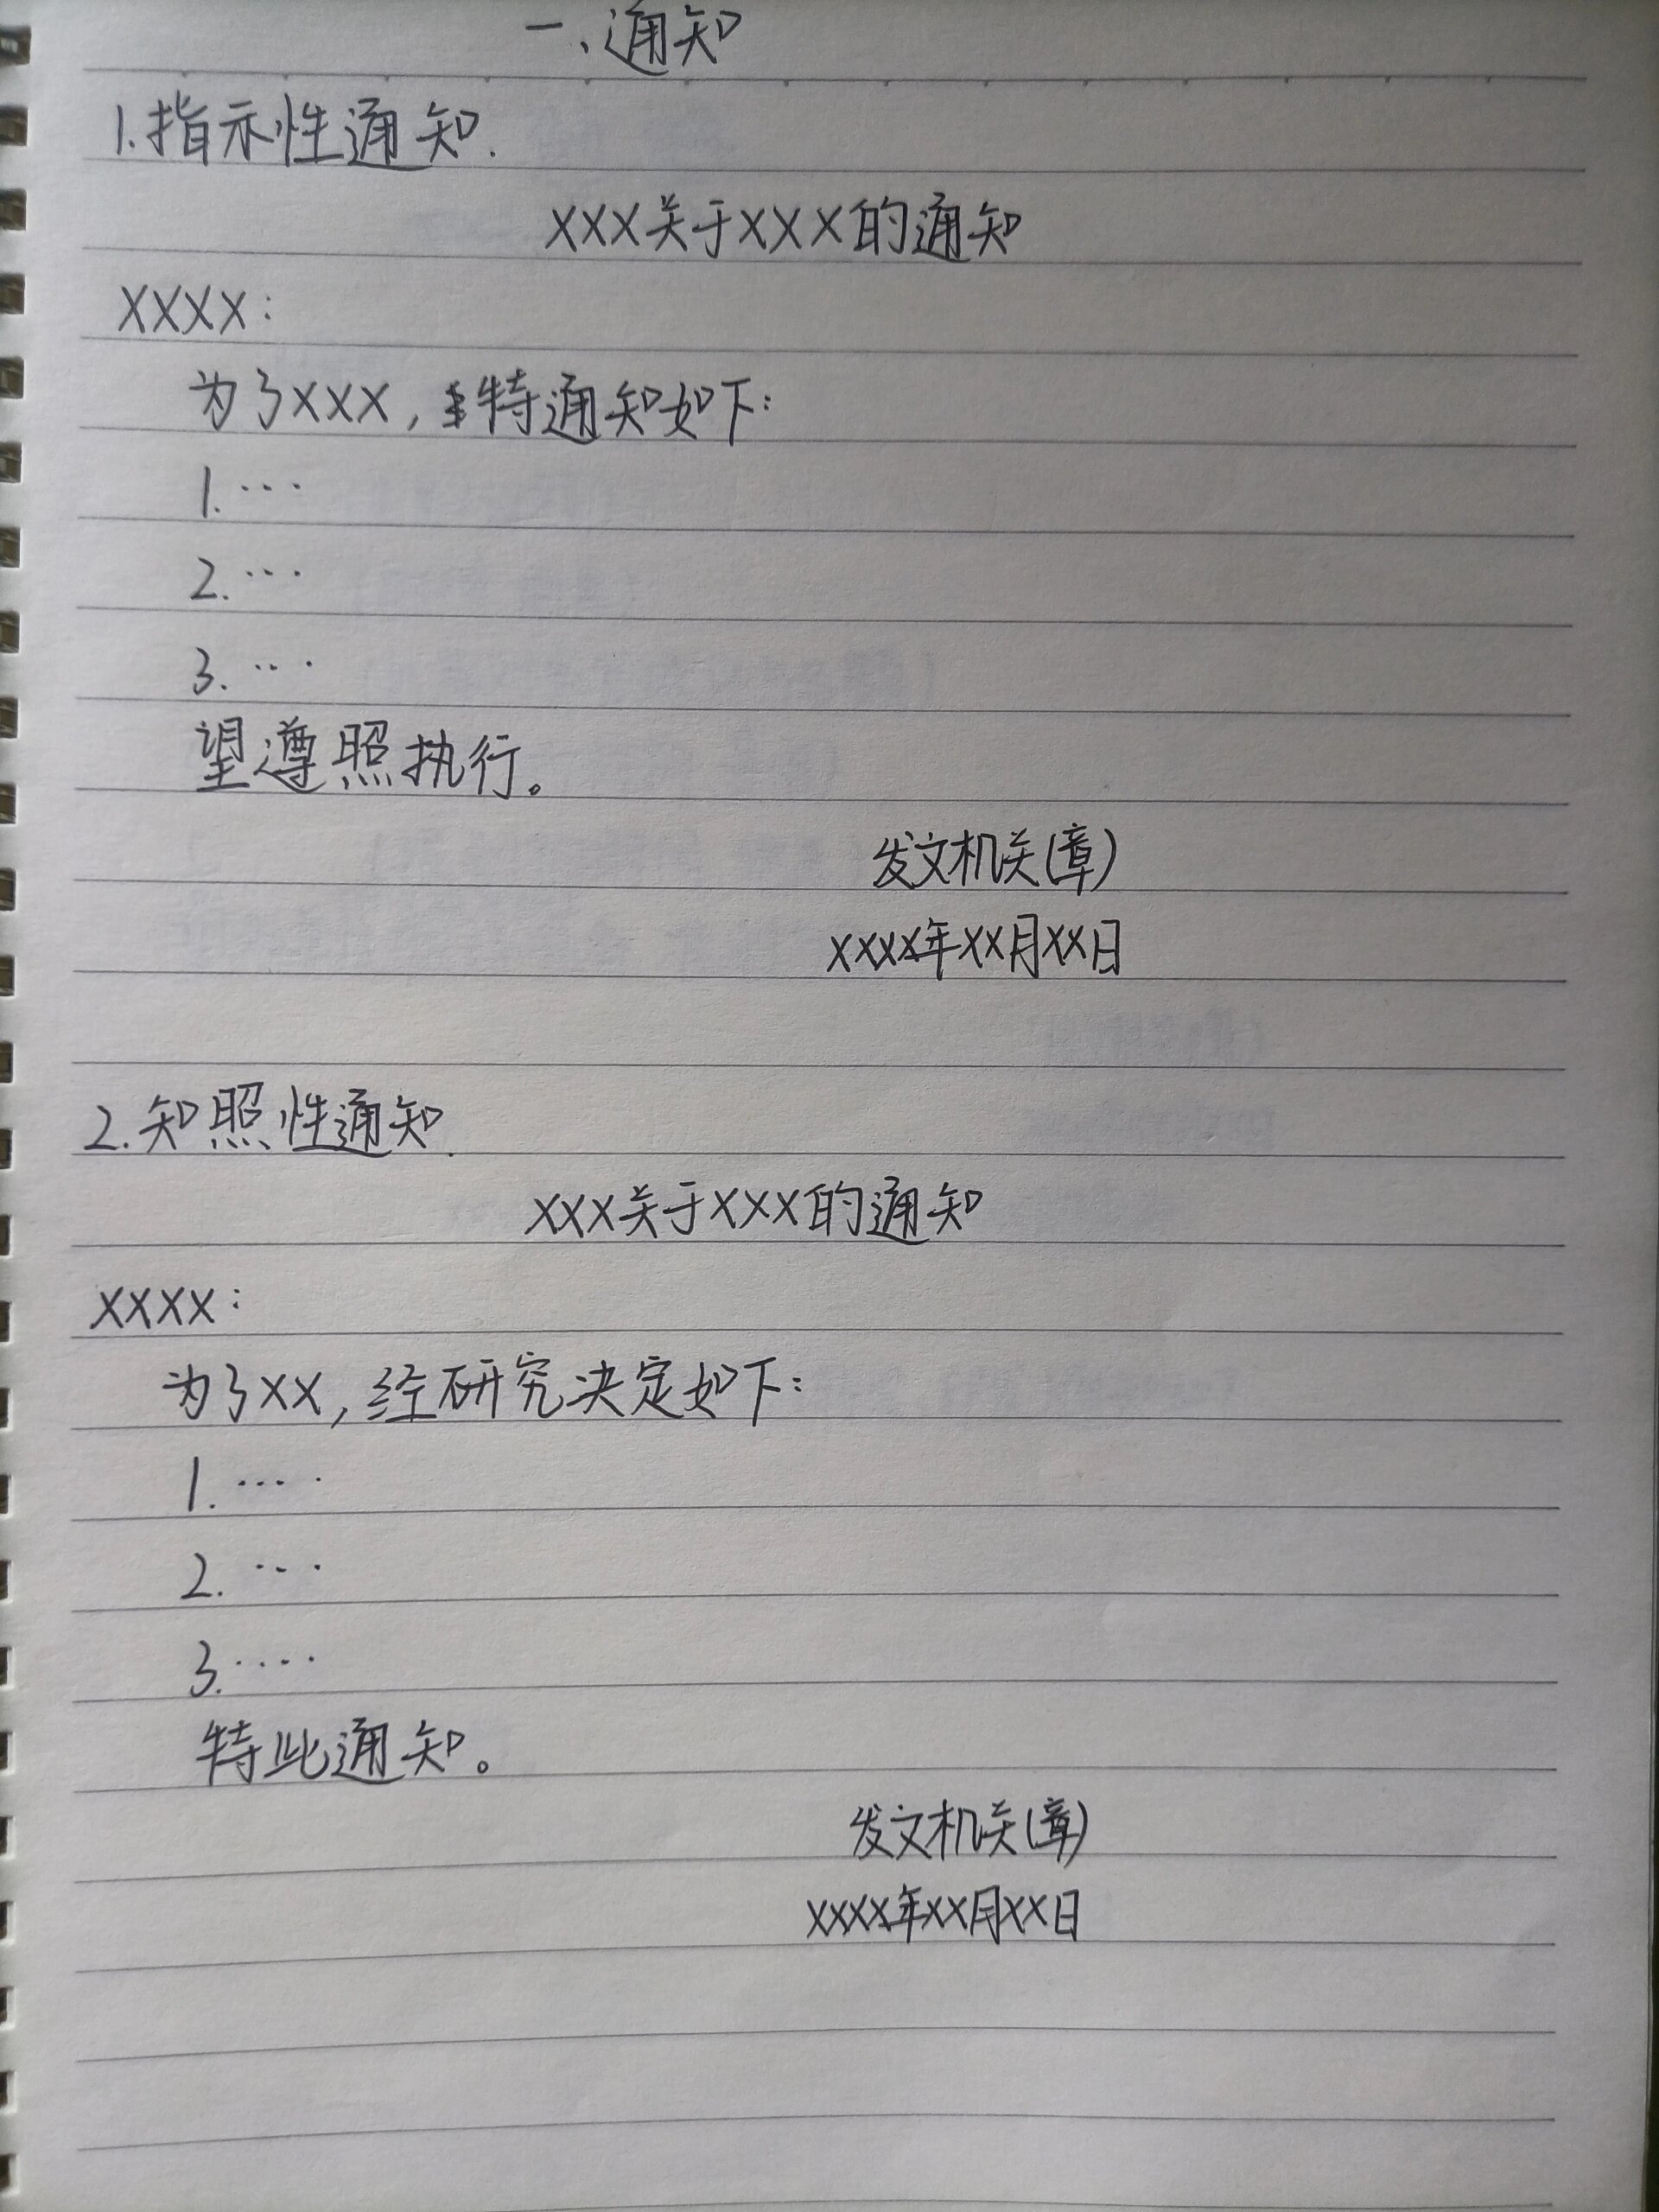 一、通知
1.指示性通知.
XXX关于XXX的通知
XXXX:
为了XXX,特通知如下:
1.…
2.…
3.…
望遵照执行。
发文机关(章)
XXXX年XX月XX日
2.知照性通知.
XXX关于XXX的通知
XXXX:
为了XX,经研究决定如下:
1.….
2.…
3.….
特此通知。
发文机关(章)
XXXX年XX月XX日